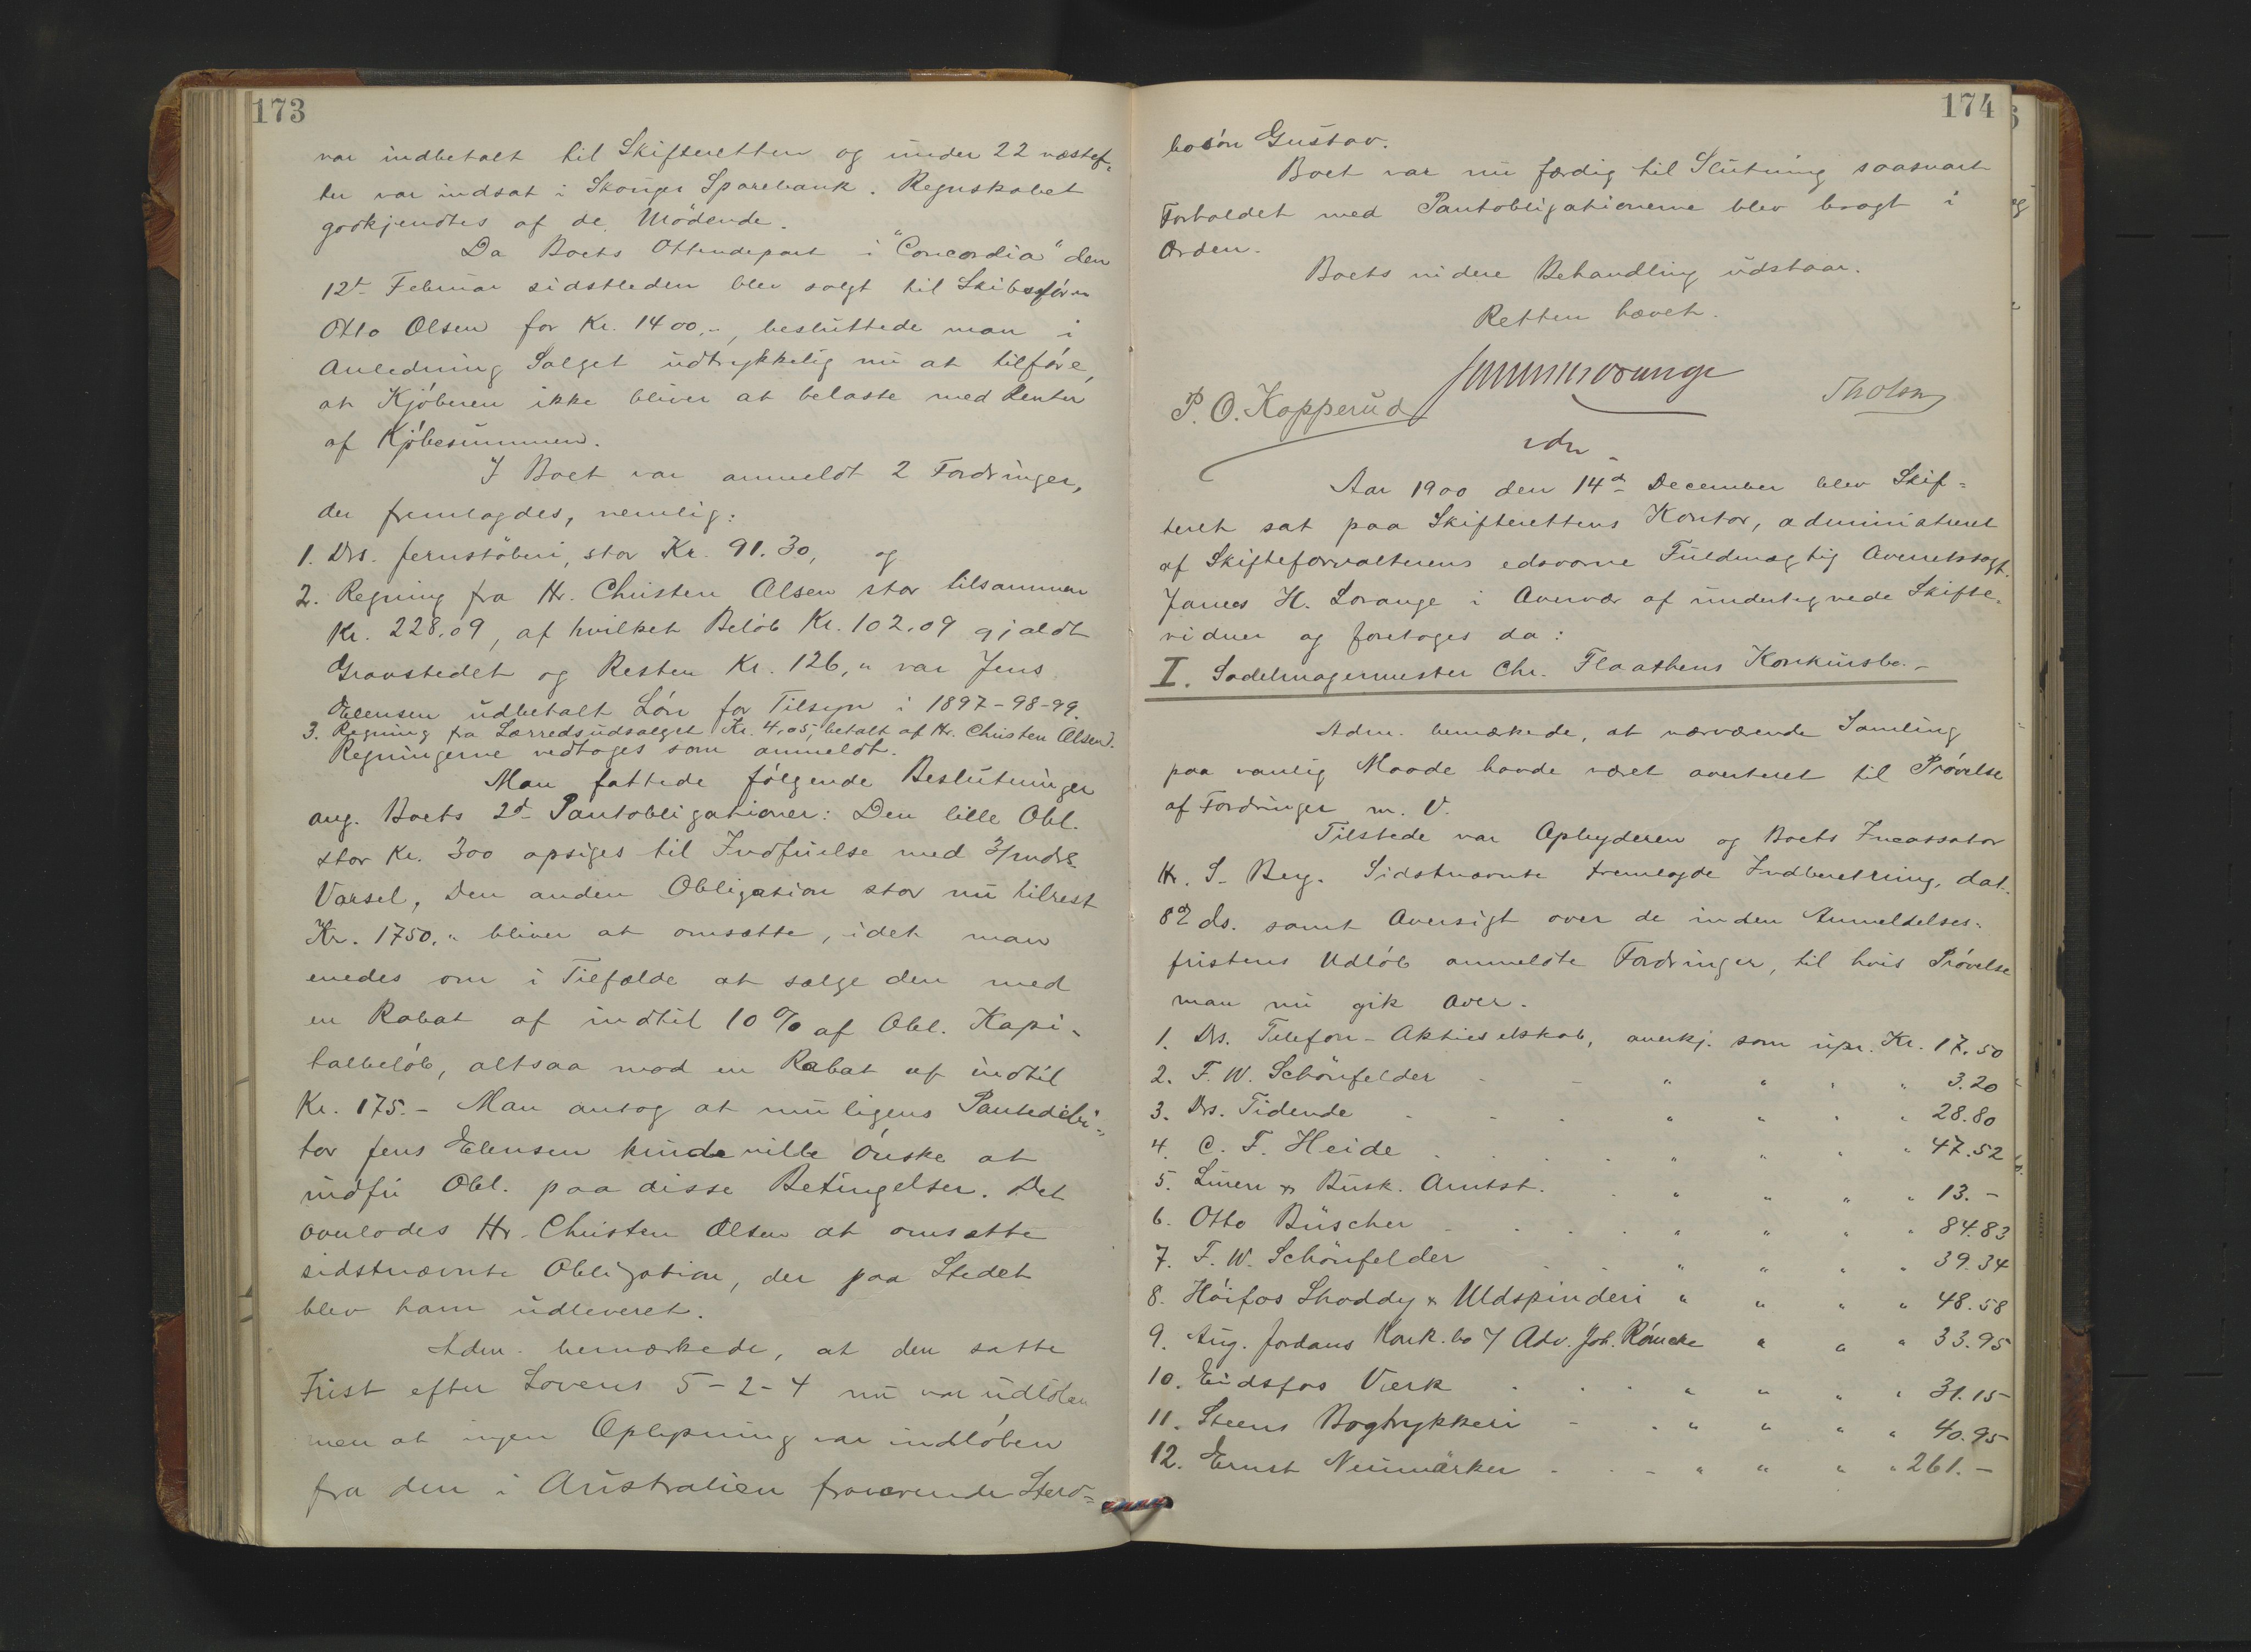 173
var indbetalt til Skifteretten og under 22 næstef-
ter var indsat i Skouger Sparebank. Regnskabet
godkjendtes af de Mødende.
Da Boets Ottendepart i "Concordia" den
12te Februar sidstleden blev solgt til Skibsfører
Otto Olsen for Kr. 1400.-, besluttede man i
Anledning Salget udtrykkelig nu at tilføre,
at Kjøberen ikke bliver at belaste med Renter
af Kjøbesummen.
I Boet var anmeldt 2 Fordringer,
der fremlagdes, nemlig:
1. Drs. Jernstøberi, stor Kr. 91.30, og
2. Regning fra Hr. Christen Olsen stor tilsammen
Kr. 228.09, af hvilket Beløb Kr. 102.09 gjaldt
Gravstedet og Resten Kr. 126," var Jens
Ellensen udbetalt Løn for Tilsyn i 1897-98-99.
3. Regning fra Lærredsudsalget Kr. 4.05, betalt af Hr. Christen Olsen.
Regningerne vedtoges som anmeldt.
Man fattede følgende Beslutninger
ang. Boets 2de Pantobligationer: Den lille Obl.
stor Kr. 300 opsiges til Indfrielse med 3/mdrs.
Varsel, Den anden Obligation stor nu tilrest
Kr. 1750." bliver at omsætte, idet man
enedes om i Tilfælde at sælge den med
en Rabat af indtil 10 % af Obl. Kapi-
talbeløb, altsaa mod en Rabat af indtil
Kr. 175.- Man antog at muligens Pantedebi-
tor Jens Ellensen kunde ville ønske at
indfri Obl. paa disse Betingelser. Det
overlodes Hr. Christen Olsen at omsætte
sidstnævnte Obligation, der paa Stedet
blev ham udleveret.
Adm. bemærkede, at den satte
Frist efter Lovens 5-2-4 nu var udløben
men at ingen Oplysning var indløben
fra den i Australien fraværende Sterv-
174
bosøn Gustav.
Boet var nu færdig til Slutning saasnart
Forholdet med Pantobligationerne blev bragt i
Orden.
Boets videre Behandling udstaar.
Retten hævet.
James H Lorange
P. O. Kopperud
Th Olsen
vdr
Aar 1900 den 14de December blev Skif-
teret sat paa Skifterettens Kontor, administreret
af Skifteforvalterens edsvorne Fuldmægtig Overretssagf.
James H. Lorange i Overvær af undertegnede Skifte-
vidner og foretoges da:
I. Sadelmagermester Chr. Flaathens Konkursbo.-
Adm. bemærkede, at nærværende Samling
paa vanlig Maade havde været averteret til Prøvelse
af Fordringer m. V.
Tilstede var Opbyderen og Boets Incassator
Hr. S. Berg. Sidstnævnte fremlagde Indberetning, dat.
8de ds. samt Oversigt over de inden Anmeldelses-
fristens Udløb anmeldte Fordringer, til hvis Prøvelse
man nu gik over.
1. Drs. Telefon-Aktieselskab, anerkj. som upr. Kr. 17.50
2. F. W. Schönfelder - - " " " " 3.20
3. Drs. Tidende - - - " " " " 28.80
4. C. F. Heide . . . . " " " " 47.52
5. Linen & Busk. Amtst. . " " " " 13.-
6. Otto Büscher - . . . " " " " 84.83
7. F. W. Schönfelder . . " " " " 39.34
8. Høifos Shoddy & Uldspinderi " " " " 48.58
9. Aug. Jordans Konk. bo v/ Adv. Joh. Röncke " " " 33.95
10. Eidsfos Værk . . . " " " " 31.15
11. Steens Bogtrykkeri - . " " " " 40.95
12. Ernst Neumärker . . - " " " " 261.-